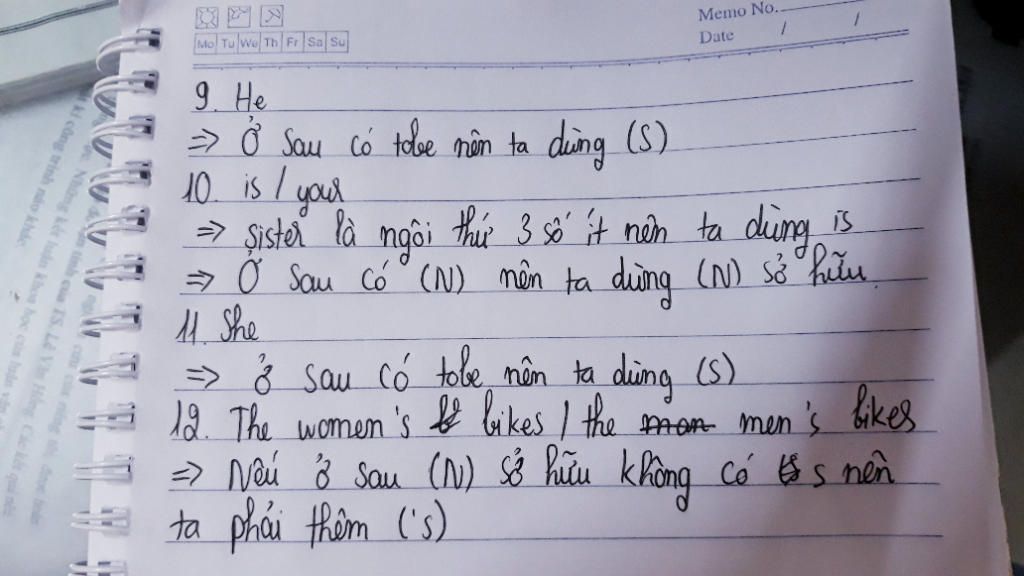 Memo No.
Mo Tu We Th Fr Sa Su
Date / /
9. He
=> Ở sau có tobe nên ta dùng (S)
10. is / your
=> sister là ngôi thứ 3 số ít nên ta dùng is
=> Ở sau có (N) nên ta dùng (N) sở hữu.
11. She
=> ở sau có tobe nên ta dùng (S)
12. The women's bikes / the man men's bikes
=> Nếu ở sau (N) sở hữu không có s nên
ta phải thêm ('s)